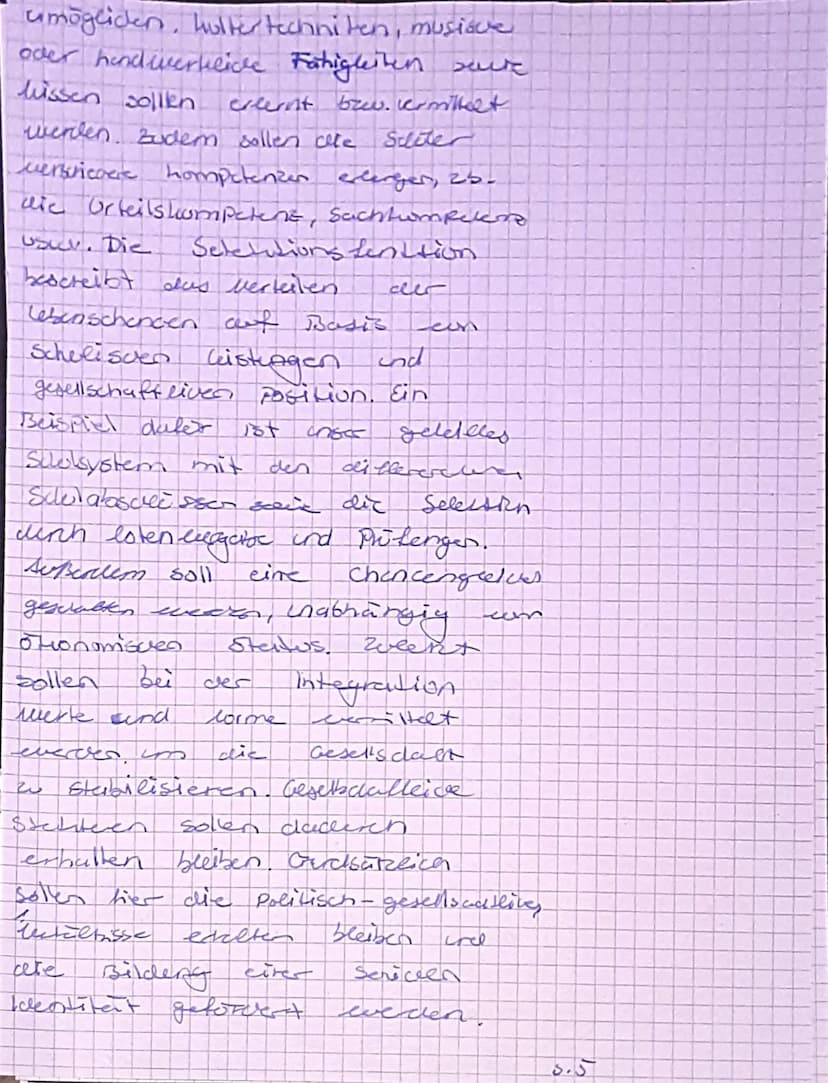 ermöglichen. Kulturtechniken, musische
oder handwerkliche Fähigkeiten sowie
Wissen sollen erlernt bzw. vermittelt
werden. Zudem sollen die Schüler
verschiedene Kompetenzen erlangen, z.B.
die Urteilskompetenz, Sachkompetenz
usw. Die Selektionsfunktion
beschreibt das Verteilen der
Lebenschancen auf Basis von
schulischen Leistungen und
gesellschaftlichen Position. Ein
Beispiel dafür ist unser
Schulsystem mit den differenzierten
Schulabschlüssen sowie die Selektion
durch Notenvergabe und Prüfungen.
Außerdem soll eine Chancengleichheit
geschaffen werden, unabhängig vom
ökonomischen Status. Zuletzt
sollen bei der Integration
Werte und Norme vermittelt
werden, um die Gesellschaft
zu stabilisieren. Gesellschaftliche
sollen dadurch
erhalten bleiben. Grundsätzlich
sollen hier die politisch-gesellschaftlichen
Verhältnisse erhalten bleiben und
die Bildung einer sozialen
Identität gefördert werden.
S.5